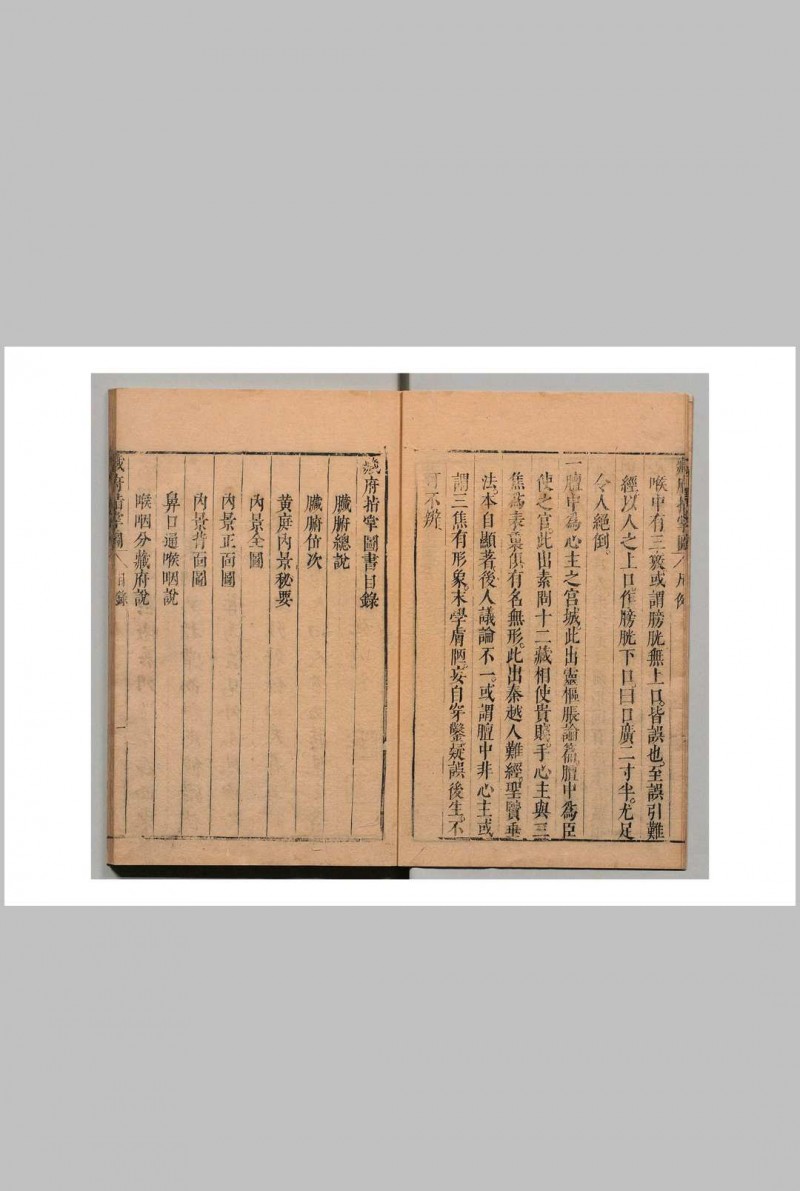 藏府指掌圖 凡例
喉中有三竅或謂膀胱無上口。皆誤也。至誤引難
經以人之上口作膀胱下口。曰口廣二寸半。尤足
令人絕倒。
一膻中為心主之宮城。此出靈樞脹論篇。膻中為臣
使之官此出素問十二藏相使貴賤。手心主與三
焦為表裏俱有名無形。此出秦越人難經。聖賢垂
法。本自顯著。後人議論不一。或謂膻中非心主。或
謂三焦有形象。末學膚陋。妄自穿鑿。疑誤後生。不
可不辨。
藏府指掌圖書目錄
臟腑總說
臟腑位次
黃庭內景秘要
內景全圖
內景正面圖
內景背面圖
鼻口通喉咽說
喉咽分藏府說
藏府指掌圖 目錄 一